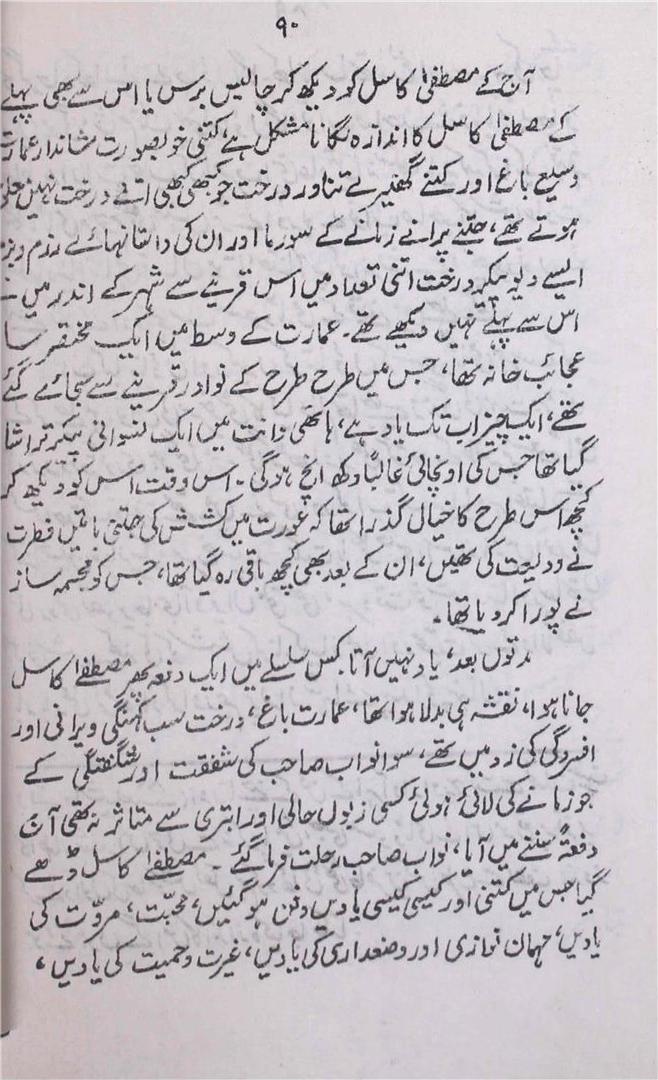 ۹۰
آج کے مصطفیٰ کاسل کو دیکھ کر چالیس برس یا اس سے بھی پہلے
کے مصطفیٰ کاسل کا اندازہ لگانا مشکل ہے، کتنی خوبصورت شاندار عمارت
وسیع باغ اور کتنے گھنیرے تناور درخت جو کبھی کبھی اتنے درخت نہیں
ہوتے تھے، جتنے پرانے زمانے کے سورما اور ان کی داستانہائے رزم و بزم
ایسے دیو پیکر درخت اتنی تعداد میں اس قرینے سے شہر کے اندر میں نے
اس سے پہلے نہیں دیکھے تھے۔ عمارت کے وسط میں ایک مختصر سا
عجائب خانہ تھا، جس میں طرح طرح کے نوادر قرینے سے سجائے گئے
تھے، ایک چیز اب تک یاد ہے، ہاتھی دانت میں ایک نسوانی پیکر تراشا
گیا تھا جس کی اونچائی غالباً دکھ انچ ہوگی۔ اس وقت اس کو دیکھ کر
کچھ اس طرح کا خیال گذرا تھا کہ عورت میں کشش کی جتنی باتیں فطرت
نے ودلیعت کی تھیں، ان کے بعد بھی کچھ باقی رہ گیا تھا، جس کو مجسمہ ساز
نے پورا کر دیا تھا۔
مدتوں بعد، یاد نہیں آتا کس سلسلے میں ایک دفعہ پھر مصطفےٰ کاسل
جانا ہوا، نقشہ ہی بدلا ہوا تھا، عمارت باغ، درخت سب کہنگی ویرانی اور
افسردگی کی زد میں تھے، سوا نواب صاحب کی شفقت اور شگفتگی کے
جو زمانے کی لائی ہوئی کسی زبوں حالی اور ابتری سے متاثر نہ تھی آن
دفعۃً سننے میں آیا، نواب صاحب رحلت فرما گئے۔ مصطفےٰ کاسل ڈھے
گیا جس میں کتنی اور کیسی کیسی یادیں دفن ہو گئیں، محبّت، مروّت کی
یادیں، مہمان نوازی اور وضعداری کی یادیں، غیرت و حمیت کی یادیں،